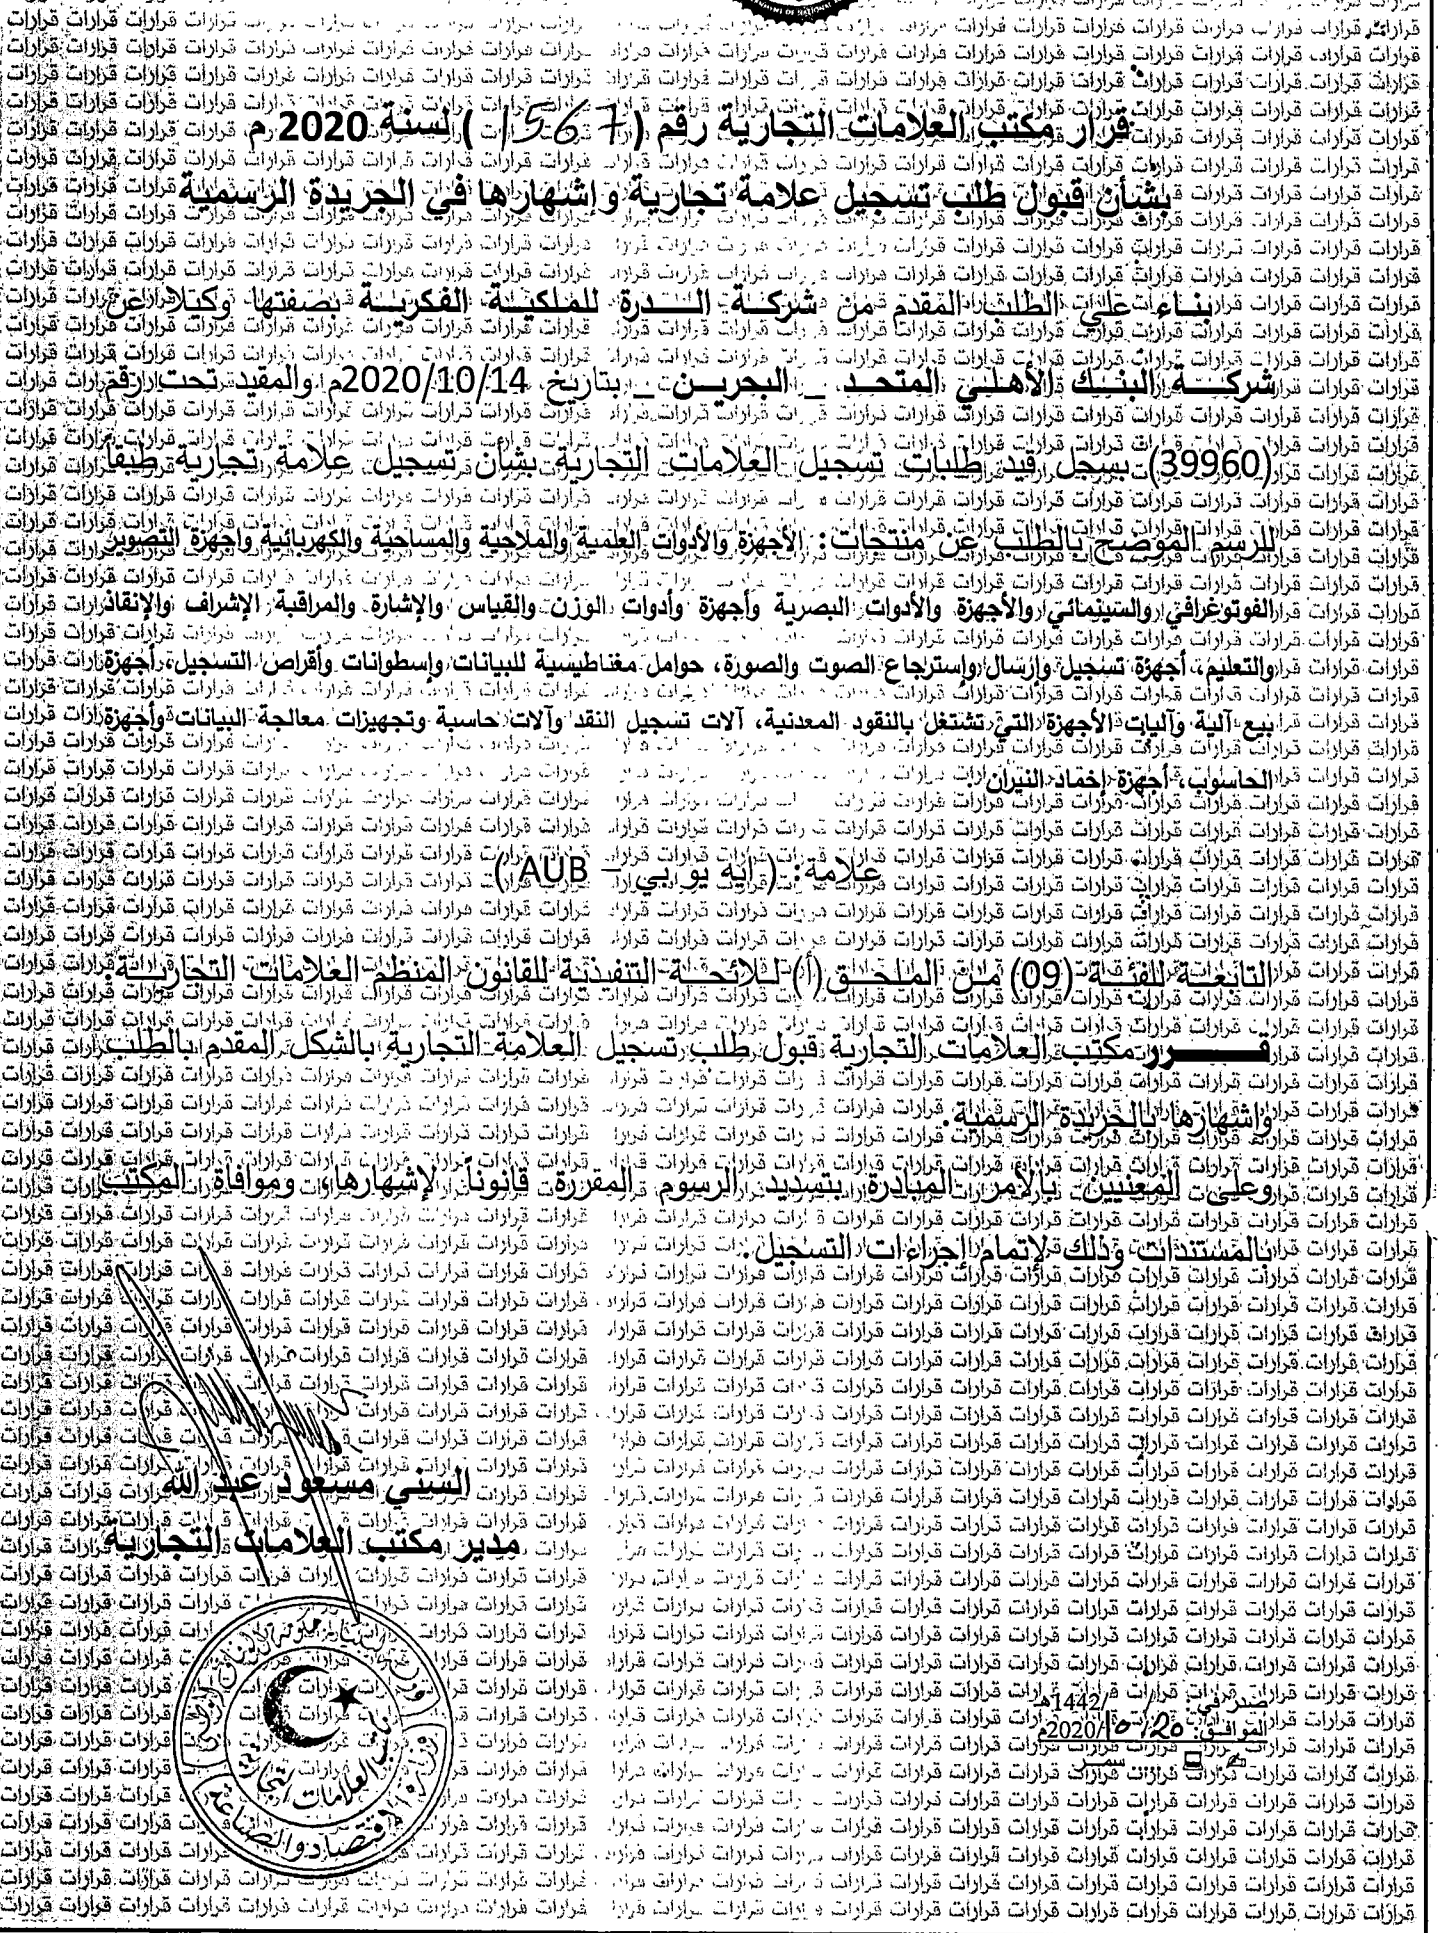 قرار مكتب العلامات التجارية رقم ( 1567 ) لسنة 2020 م
بشأن قبول طلب تسجيل علامة تجارية وإشهارها في الجريدة الرسمية
بناء علي الطلب المقدم من شركة الدرة للملكية الفكرية بصفتها وكيلا عن
شركة البنك الأهلي المتحد _ البحرين _ بتاريخ 2020/10/14م والمقيد تحت رقم
(39960) بسجل قيد طلبات تسجيل العلامات التجارية بشأن تسجيل علامة تجارية طبقاً
للرسم الموضح بالطلب عن منتجات: الأجهزة والأدوات العلمية والملاحية والمساحية والكهربائية وأجهزة التصوير
الفوتوغرافي والسينمائي والأجهزة والأدوات البصرية وأجهزة وأدوات الوزن والقياس والإشارة والمراقبة الإشراف والإنقاذ
والتعليم، أجهزة تسجيل وإرسال وإسترجاع الصوت والصورة، حوامل مغناطيسية للبيانات وإسطوانات وأقراص التسجيل، أجهزة
بيع آلية وآليات الأجهزة التي تشتغل بالنقود المعدنية، آلات تسجيل النقد وآلات حاسبة وتجهيزات معالجة البيانات وأجهزة
الحاسوب، أجهزة إخماد النيران .
علامة: ( ايه يو بي – AUB )
التابعة للفئة (09) من الملحق (أ) للائحة التنفيذية للقانون المنظم العلامات التجارية
قـــــرر مكتب العلامات التجارية قبول طلب تسجيل العلامة التجارية بالشكل المقدم بالطلب
وإشهارها بالجريدة الرسمية.
وعلى المعنيين بالأمر المبادرة بتسديد الرسوم المقررة قانوناً لإشهارها، وموافاة المكتب
بالمستندات وذلك لإتمام إجراءات التسجيل.
السني مسعود عبد الله
مدير مكتب العلامات التجارية
صدر في: / /1442هـ
الموافق: 20/10/2020م
سمر
مكتب العلامات التجارية
وزارة الاقتصاد والصناعة